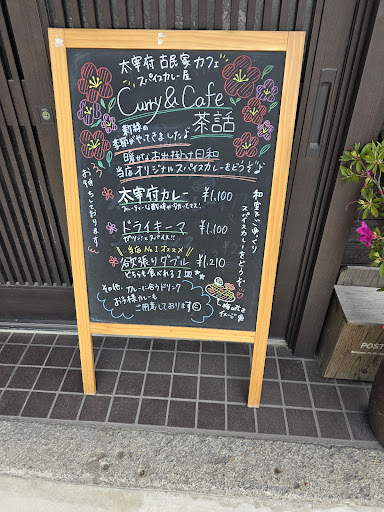 太宰府 古民家カフェ
スパイスカレー屋
Curry & Cafe
茶話
新緑の
季節がやってきました♪
暖かなお出掛け日和
当店オリジナルスパイスカレーをどうぞ♪
お待ちしております
和室でごゆっくり
スパイスカレーをどうぞ…
太宰府カレー ¥1,100
ドライキーマ ¥1,100
ガツンとスパイス!!
当店No.1オススメ
欲張りダブル ¥1,210
どちらも食べれる1皿
その他、カレーに合うドリンク
お子様カレーも
ご用意しております
イメージ
POST